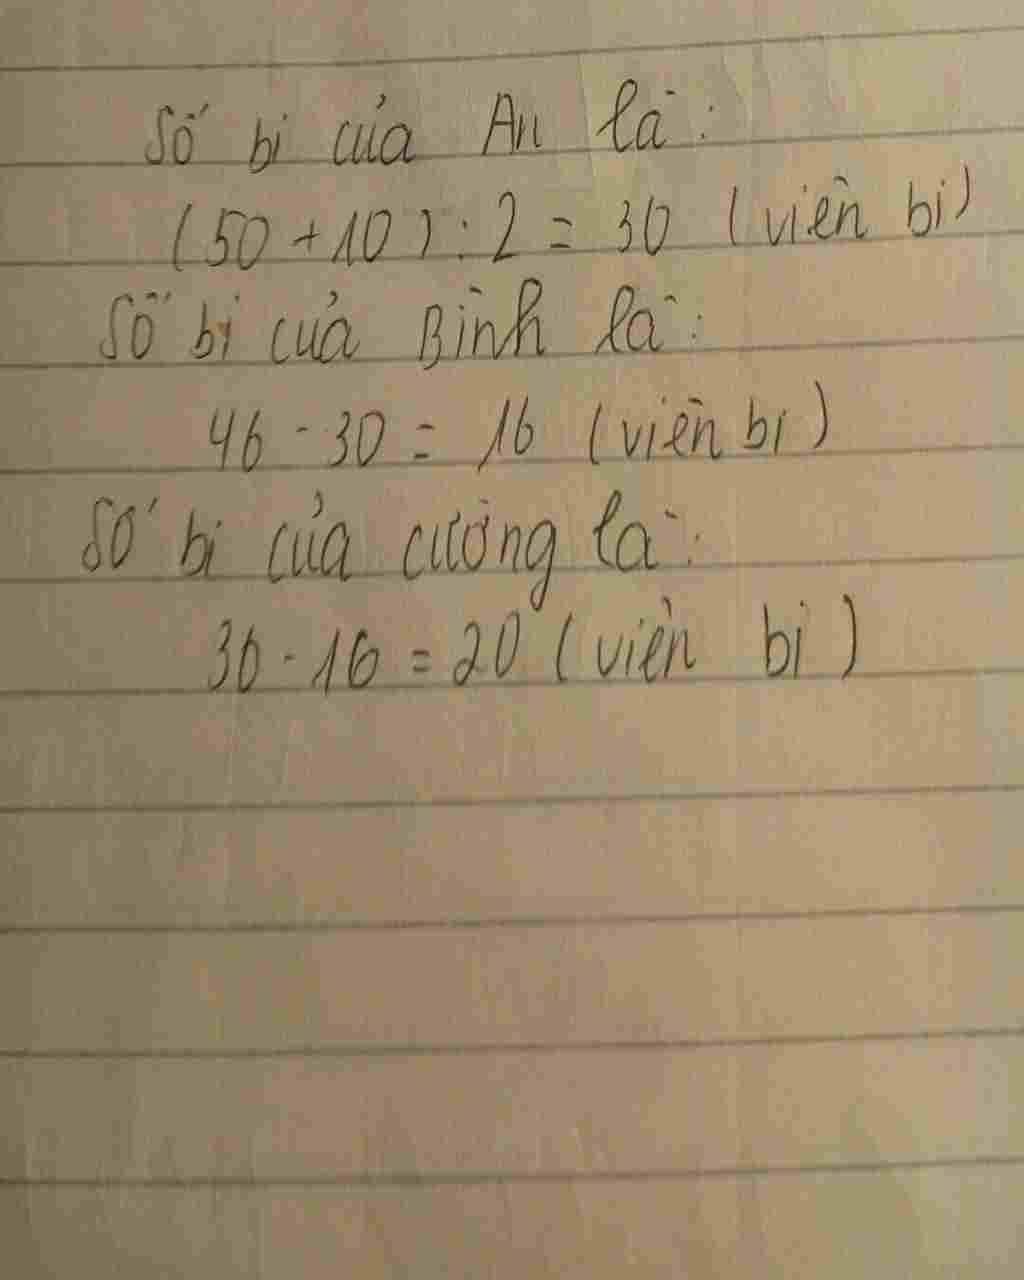 Số bi của An là:
(50 + 10) : 2 = 30 (viên bi)
Số bi của Bình là:
46 - 30 = 16 (viên bi)
Số bi của cường là:
36 - 16 = 20 (viên bi)